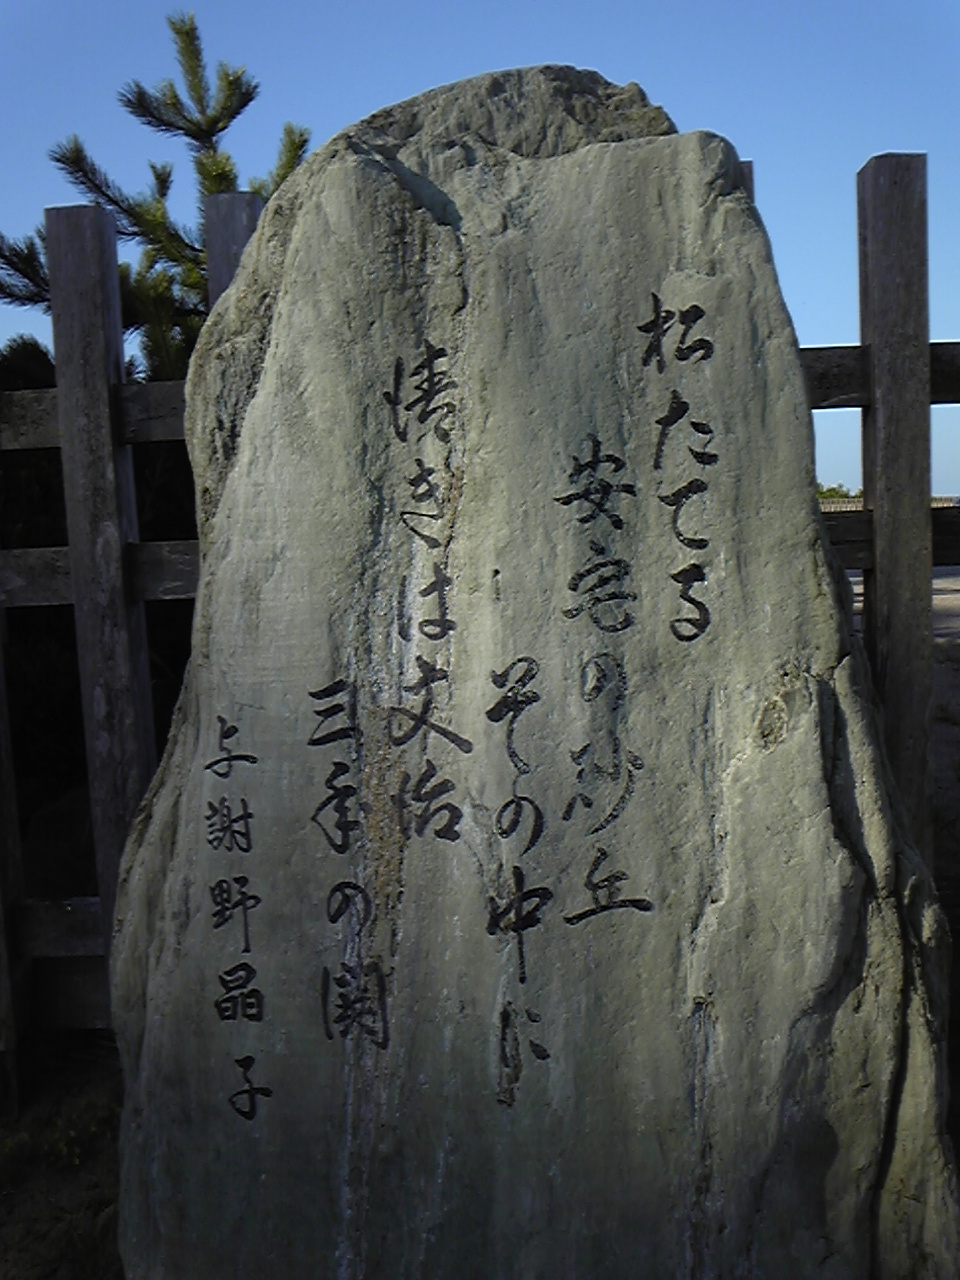 松たてる
安宅の砂丘
その中に
清きは文治
三年の関
与謝野晶子